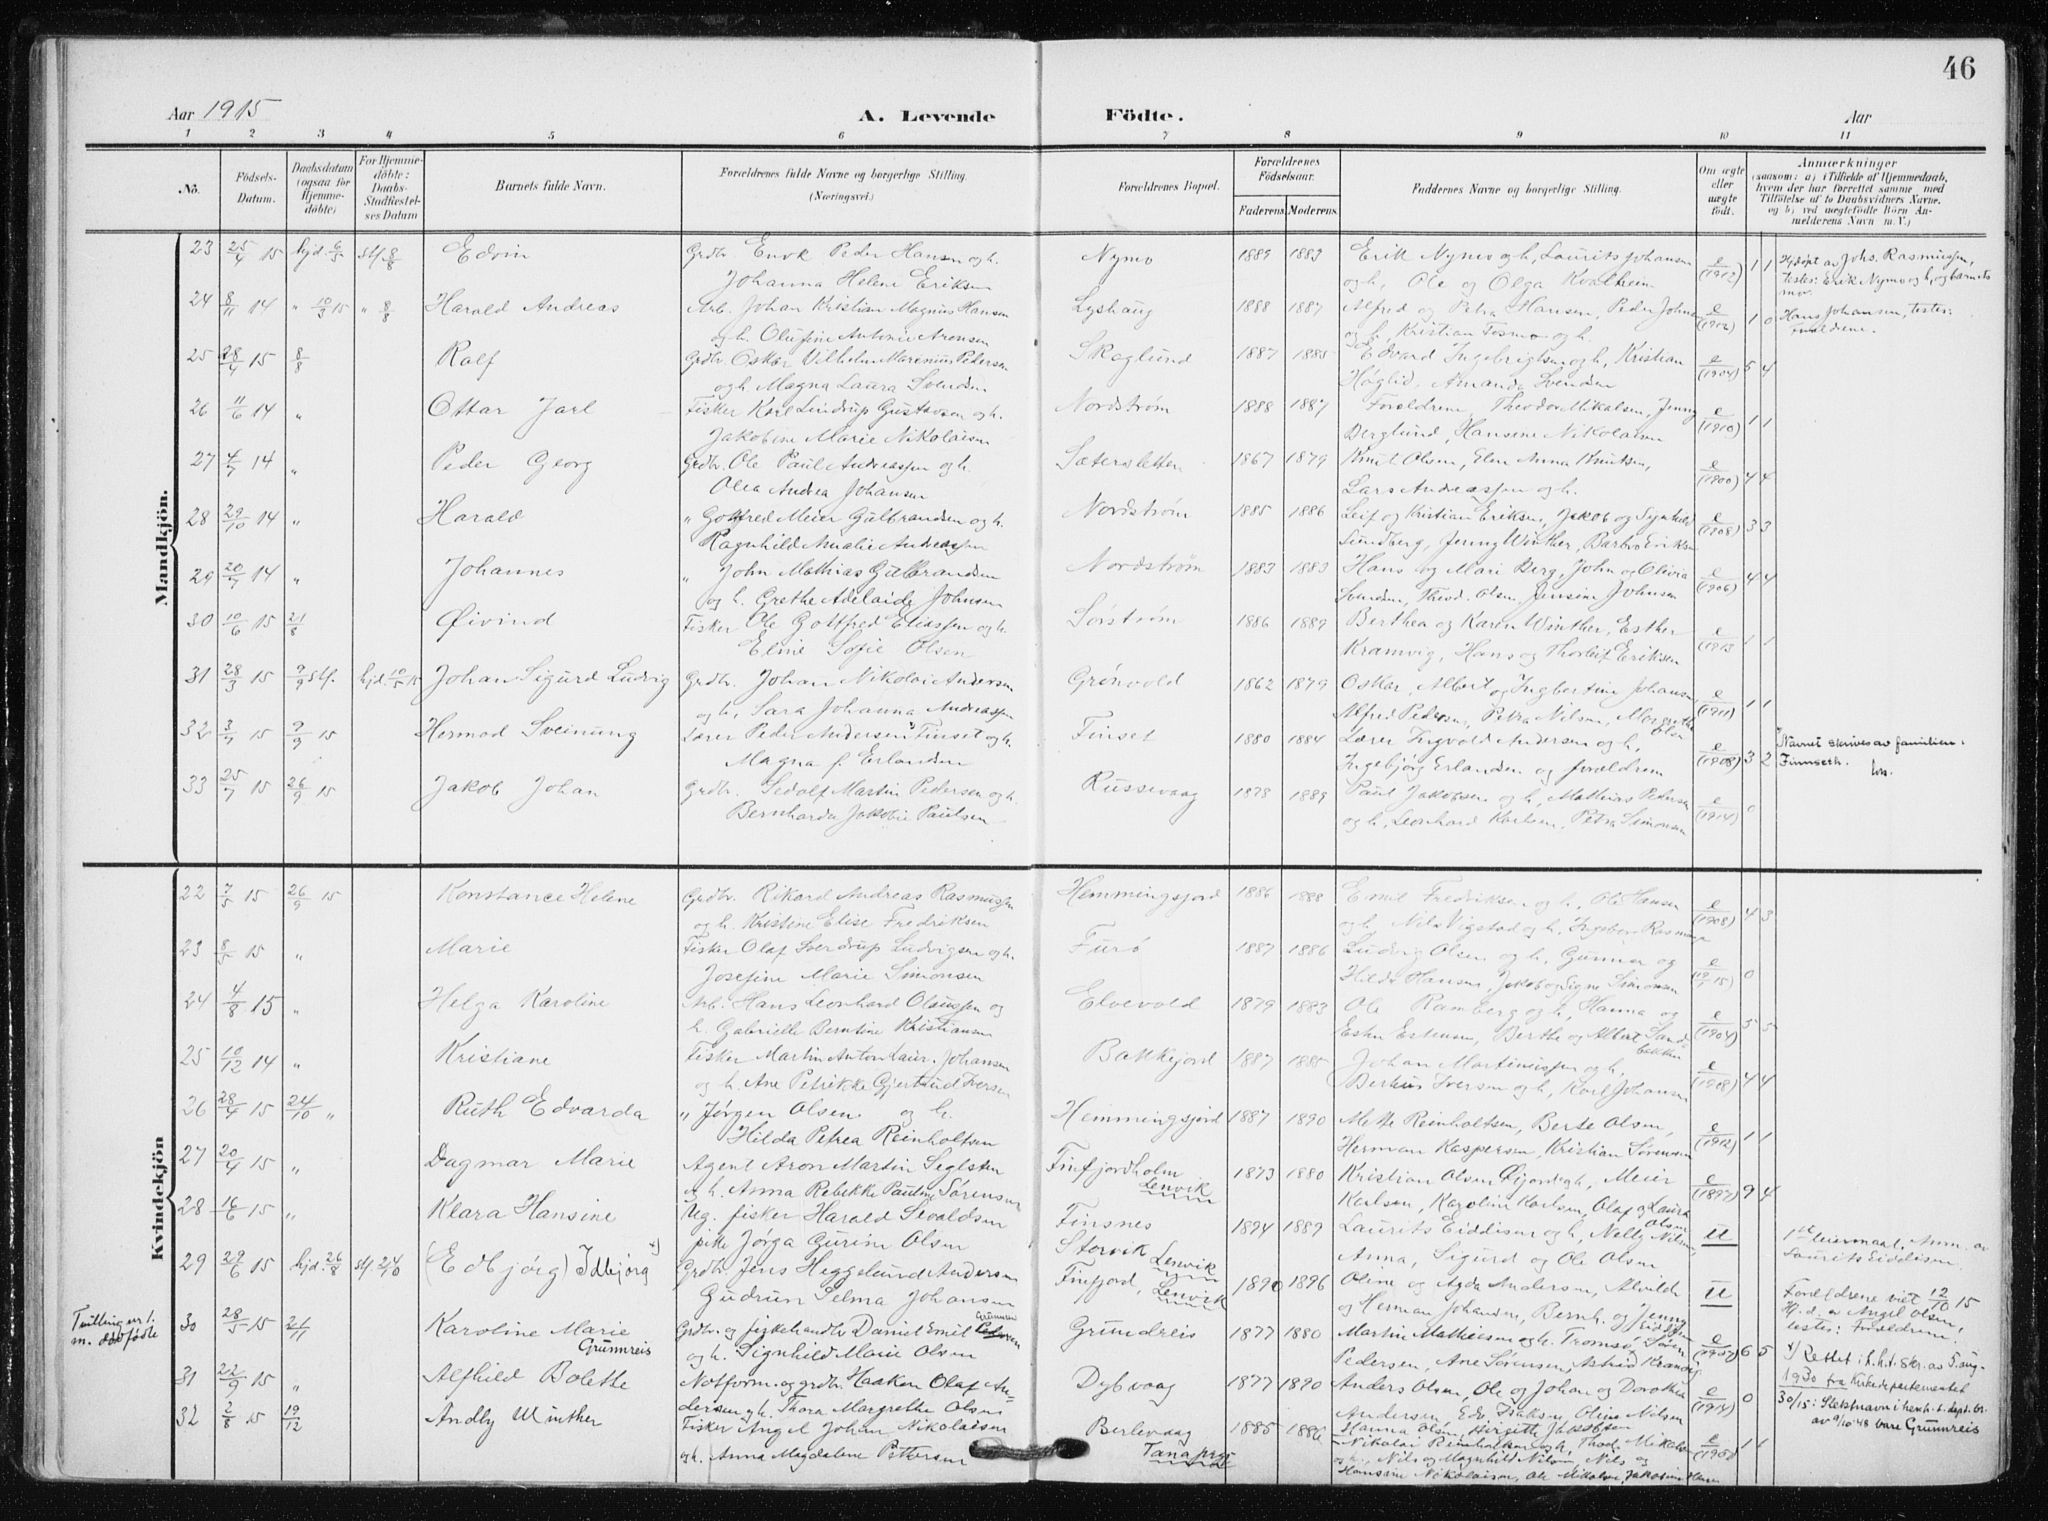 46
Aar 1915 A. Levende Fødte. Aar
1 2 3 4 5 6 7 8 9 10 11
No. Fødsels-Datum. Daabsdatum (ogsaa for Hjemmedöbte) For Hjemmedöbte: Daabs-Stadfæstelses Datum Barnets fulde Navn. Forældrenes fulde Navne og borgerlige Stilling. (Næringsvei.) Forældrenes Bopæl. Forældrenes Födselsaar. Faderens. Moderens. Faddernes Navne og borgerlige Stilling. Om ægte eller uægte födt. Anmærkninger (saasom: a) i Tilfælde af Hjemmedaab, hvem der har forrettet samme, med Tilföielse af to Daabsvidners Navne, og b) ved uægtefödte Börn Anmelderens Navn m. V.)
Mandkjön.
23 25/4 15 hjd. 6/5 stf. 8/8 Edvin Grdbr. Enok Peder Hansen og h. Nymo 1889 1883 Erik Nymo og h, Laurits Johansen e (1912) 1 1 Hjdøpt av Johs. Rasmussen,
Johanna Helene Eriksen og h, Ole og Olga Kvalheim testes: Erik Nymo og h, og barnets mor.
24 8/11 14 " 10/3 15 " 8/8 Harald Andreas Arb. Johan Kristian Magnus Hansen Lyshaug 1888 1887 Alfred og Petra Hansen, Peder Johnsen e 1 0 Hans Johansen, testes:
og h. Olufine Antonie Aronsen og h, Kristian Tosmo og h. forældrene.
25 28/4 15 8/8 Rolf Grdbr. Oskar Vilhelm Marenius Pedersen Skoglund 1887 1885 Edvard Ingebrigtsen og h, Kristian e (1904) 5 4
og h Magna Laura Svendsen Høglid, Amanda Svendsen
26 11/6 14 " Ottar Jarl Fisker Karl Lindrup Gustavsen og h. Nordstrøm 1888 1887 Forældrene, Theodor Mikalsen, Jenny e (1910) 1 1
Jakobine Marie Nikolaisen Berglund, Hansine Nikolaisen
27 4/7 14 " Peder Georg Grdbr. Ole Paul Andreassen og h. Sætersletten 1867 1879 Knut Olsen, Elen Anna Knutsen, e (1900) 4 4
Olea Andrea Johansen Lars Andreassen og h.
28 29/10 14 " Harald " Gotfred Meier Gulbrandsen og h. Nordstrøm 1885 1886 Leif og Kristian Eriksen, Jakob og Signhild e (1908) 3 3
Ragnhild Amalie Andreassen Sundberg, Jenny Winther, Barbro Eriksen
29 20/7 14 " Johannes " John Mathias Gulbrandsen Nordstrøm 1883 1883 Hans og Mari Berg, John og Olivia e (1906) 4 4
og h. Grethe Adelaide Johnsen Svendsen, Theod. Olsen, Jensine Johnsen
30 10/6 15 21/8 Øivind Fisker Ole Gottfred Eliassen og h. Sørstrøm 1886 1889 Berthea og Karen Winther, Esther e (1913 1 1
Eline Sofie Olsen Kramvig, Hans og Thorleif Eriksen
31 28/3 15 9/9 stf. hjd. 10/5 15 Johan Sigurd Ludvig Grdbr. Johan Nikolai Andersen Grønvold 1862 1879 Oskar, Albert og Ingbertine Johansen e (1911) 1 1
og h, Sara Johanna Andreassen Alfred Pedersen, Petra Nilsen, Margrethe Olsen
32 3/7 15 9/9 15 Hermod Sveinung Lærer Peder Andersen Finset og h. Finset 1880 1884 Lærer Ingvold Andersen og h, e (1908) 3 2 Navnet skrives av familien:
Magna f. Erlandsen Ingebjørg Erlandsen og forældrene Finnseth.
33 25/7 15 26/9 15 Jakob Johan Grdbr. Sedolf Martin Pedersen og h. Russevaag 1878 1889 Paul Jakobsen og h, Mathias Pedersen e (1914) 0
Bernharda Jakobie Paulsen og h, Leonhard Karlsen, Petra Simonsen
Kvindekjön
22 7/5 15 26/9 15 Konstance Helene Grdbr. Rikard Andreas Rasmussen Hemmingsfjord 1886 1888 Emil Fredriksen og h, Ole Hansen e (1908) 4 3
og h. Kristine Elise Fredriksen og h, Nils Vigstad og h,
23 8/5 15 " Marie Fisker Olaf Sverdrup Ludvigsen og h. Furø 1887 1886 Ludvig Olsen og h, Gunnar og e 0
Josefine Marie Simonsen Hilda Hansen, Jakob og Signe Simonsen
24 4/8 15 " Helga Karoline Arb. Hans Leonhard Olaussen og Elvevold 1879 1883 Ole Ramberg og h, Hanna og e (1904) 5 5
h. Gabrielle Berntine Kristiansen Berthe og Albert Sandbakken
25 10/12 14 " Kristiane Fisker Martin Anton Johansen Bakkejord 1887 1885 Johan Martinussen og h, e (1908) 4 4
og h. Ane Petrikke Gjertrud Iversen Iversen og h, Karl Johansen
26 28/4 15 24/10 " Ruth Edvarda " Jørgen Olsen og h. Hemmingsfjord 1887 1890 Mette Reinholtsen, Berte Olsen, e (1912) 1 1
Hilda Petrea Reinholtsen Herman Kaspersen, Kristian Sørensen
27 20/4 15 " Dagmar Marie Agent Aron Martin Seglsten Finfjordholm 1873 1880 Kristian Olsen og h, Meier e (1897) 9 4
og h. Anna Rebekke Pauline Sørensen Lenvik Karlsen, Karoline Karlsen, Olaf og Laura Olsen
28 16/6 15 " Klara Hansine Ug. fisker Harald Sivaldsen Finsnes 1894 1889 Laurits Eiddisen og h, Nelly Nilsen, u 1ste leiermaal, Anm. av
pike Jørga Gurine Olsen Storvik Lenvik Anna, Sigurd og Ole Olsen Laurits Eiddisen.
29 29/6 15 hjd. 26/8 stf. 24/10 (Edbjørg) Idbjørg x) Grdbr. Jens Heggelund Andersen Finfjord, Lenvik 1890 1896 Oline og Agda Andersen, Alvilde u Forældrene viet 12/10 15
Gudrun Selma Johansen og Herman Johansen, Bernh. og Jenny H.d. av Angel Olsen, testes: Forældrene.
Tvilling nr 1. m. dødfødte
30 28/5 15 21/11 Karoline Marie Grunnreis Grdbr. og fiskehandler Daniel Emil Pedersen Grundreis 1877 1880 Martin Mathiesen og h. Tromsø, Søren e (1907) 6 5 x) Rettet i h.h.t. skr. av 5 aug.
og h. Signhild Marie Olsen Pedersen, Ane Sørensen, Astrid 1930 fra Kirkedepartementet
31 22/9 15 " Alfhild Bolette Notform. og grdbr. Haaken Olaf An- Dybvaag 1877 1890 Anders Olsen, Ole og Johan og Dorothea e 0 30/15: Slektsnavn i henh. t. dept. br.
dersen og h. Thora Margrethe Olsen Andersen, Oline Nilsen av 9/10 48 være Grunnreis
32 2/8 15 19/12 Andly Winther Fisker Angel Johan Nikolaisen Berlevaag 1885 1886 Hanna Olsen, Birgitte Jakobsen e 1 1
og h. Anna Magdalene Pettersen Tana prgj. Nikolai Reinholtsen og h, Thod. Mikalsen
og h, Nils og Magnhild Nilsen, Nils og
Hansine Nikolaisen, Ole Mikalsen, Jakobine Hansen